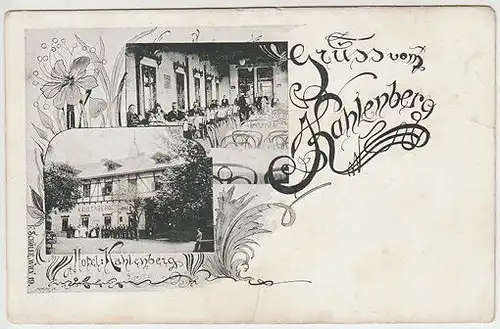 Gruss vom
Kahlenberg
KAHLENBERG
Hotel: Kahlenberg.